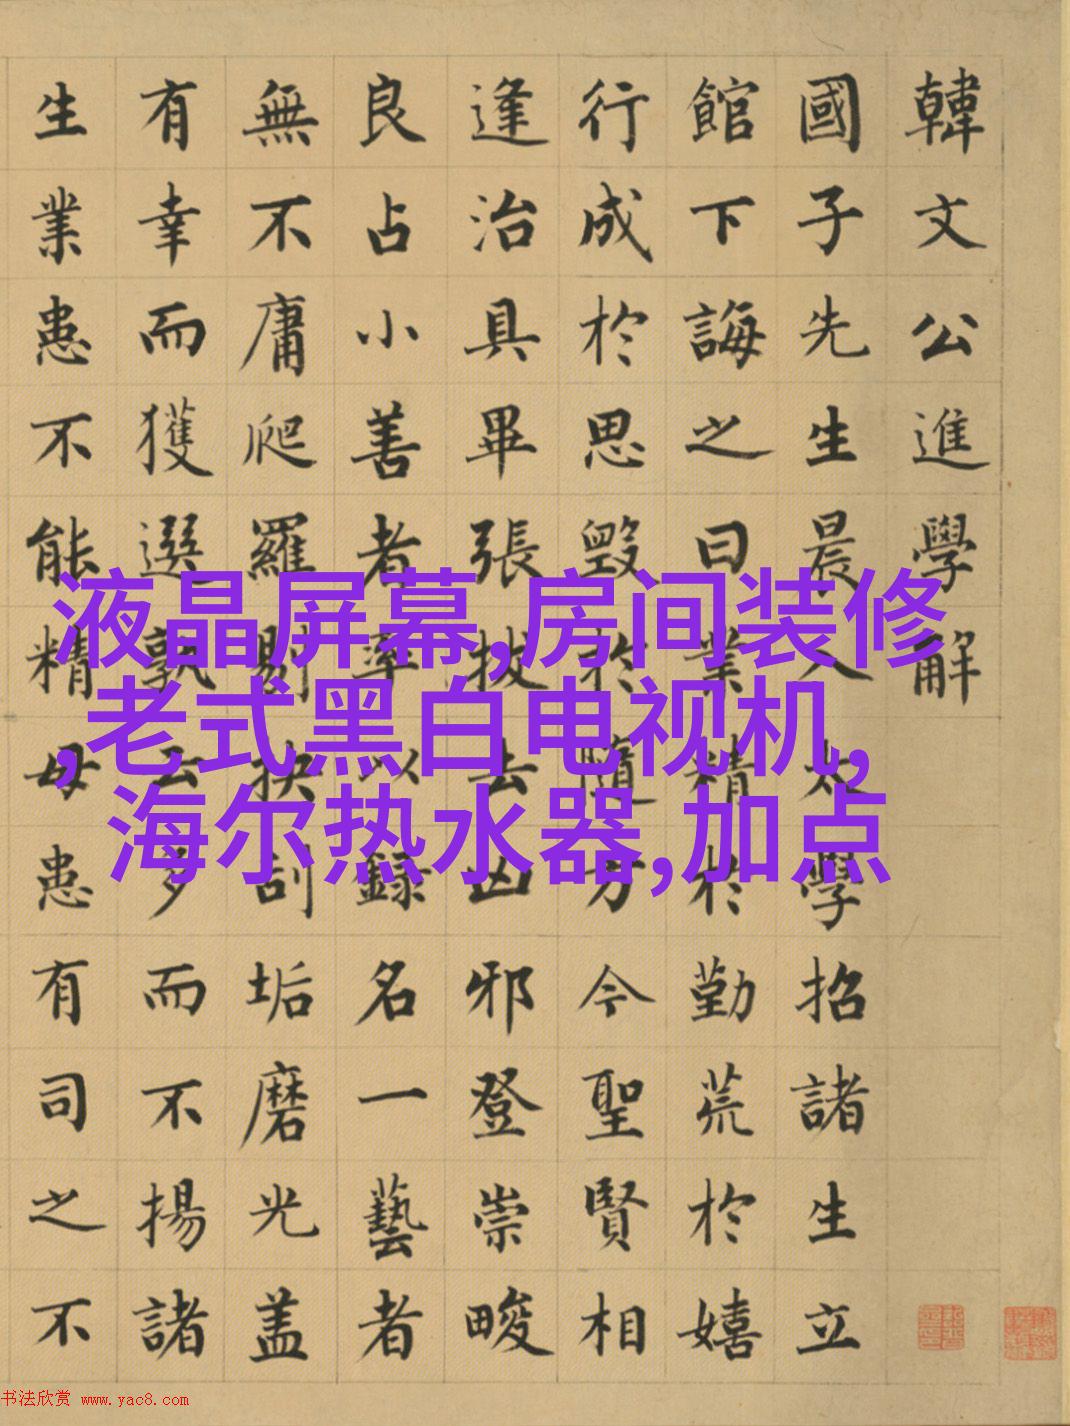 韓文公進學解
國子先生晨入太學招諸生立
館下誨之曰業精於勤荒於嬉
行成於思毀於隨方今聖賢相
逢治具畢張拔去凶邪登崇畯
良占小善者率以錄名一藝者
無不庸爬羅剔抉刮垢磨光盖
有幸而獲選孰云多而不揚諸
生業患不能精毋患有司之不
液晶屏幕,房间装修
,老式黑白电视机,
海尔热水器,加点
书法欣赏 www.yac8.com